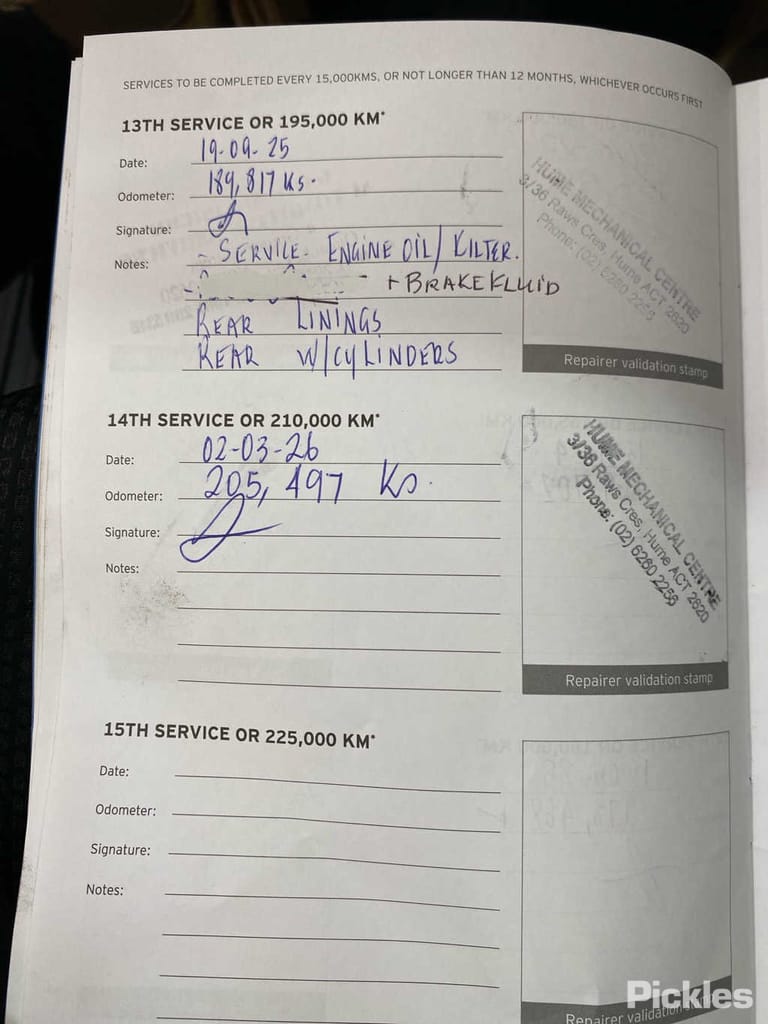 SERVICES TO BE COMPLETED EVERY 15,000KMS, OR NOT LONGER THAN 12 MONTHS, WHICHEVER OCCURS FIRST
13TH SERVICE OR 195,000 KM*
Date: 19-09-25
Odometer: 189,817 Ks.
Signature:
Notes: - SERVICE. ENGINE OIL/FILTER.
+ BRAKE FLUID
REAR LININGS
REAR W/CYLINDERS
HUME MECHANICAL CENTRE
3/36 Raws Cres, Hume ACT 2620
Phone: (02) 6260 2256
Repairer validation stamp
14TH SERVICE OR 210,000 KM*
Date: 02-03-26
Odometer: 205,497 Ks.
Signature:
Notes:
HUME MECHANICAL CENTRE
3/36 Raws Cres, Hume ACT 2620
Phone: (02) 6260 2256
Repairer validation stamp
15TH SERVICE OR 225,000 KM*
Date:
Odometer:
Signature:
Notes:
Repairer validation stamp
Pickles